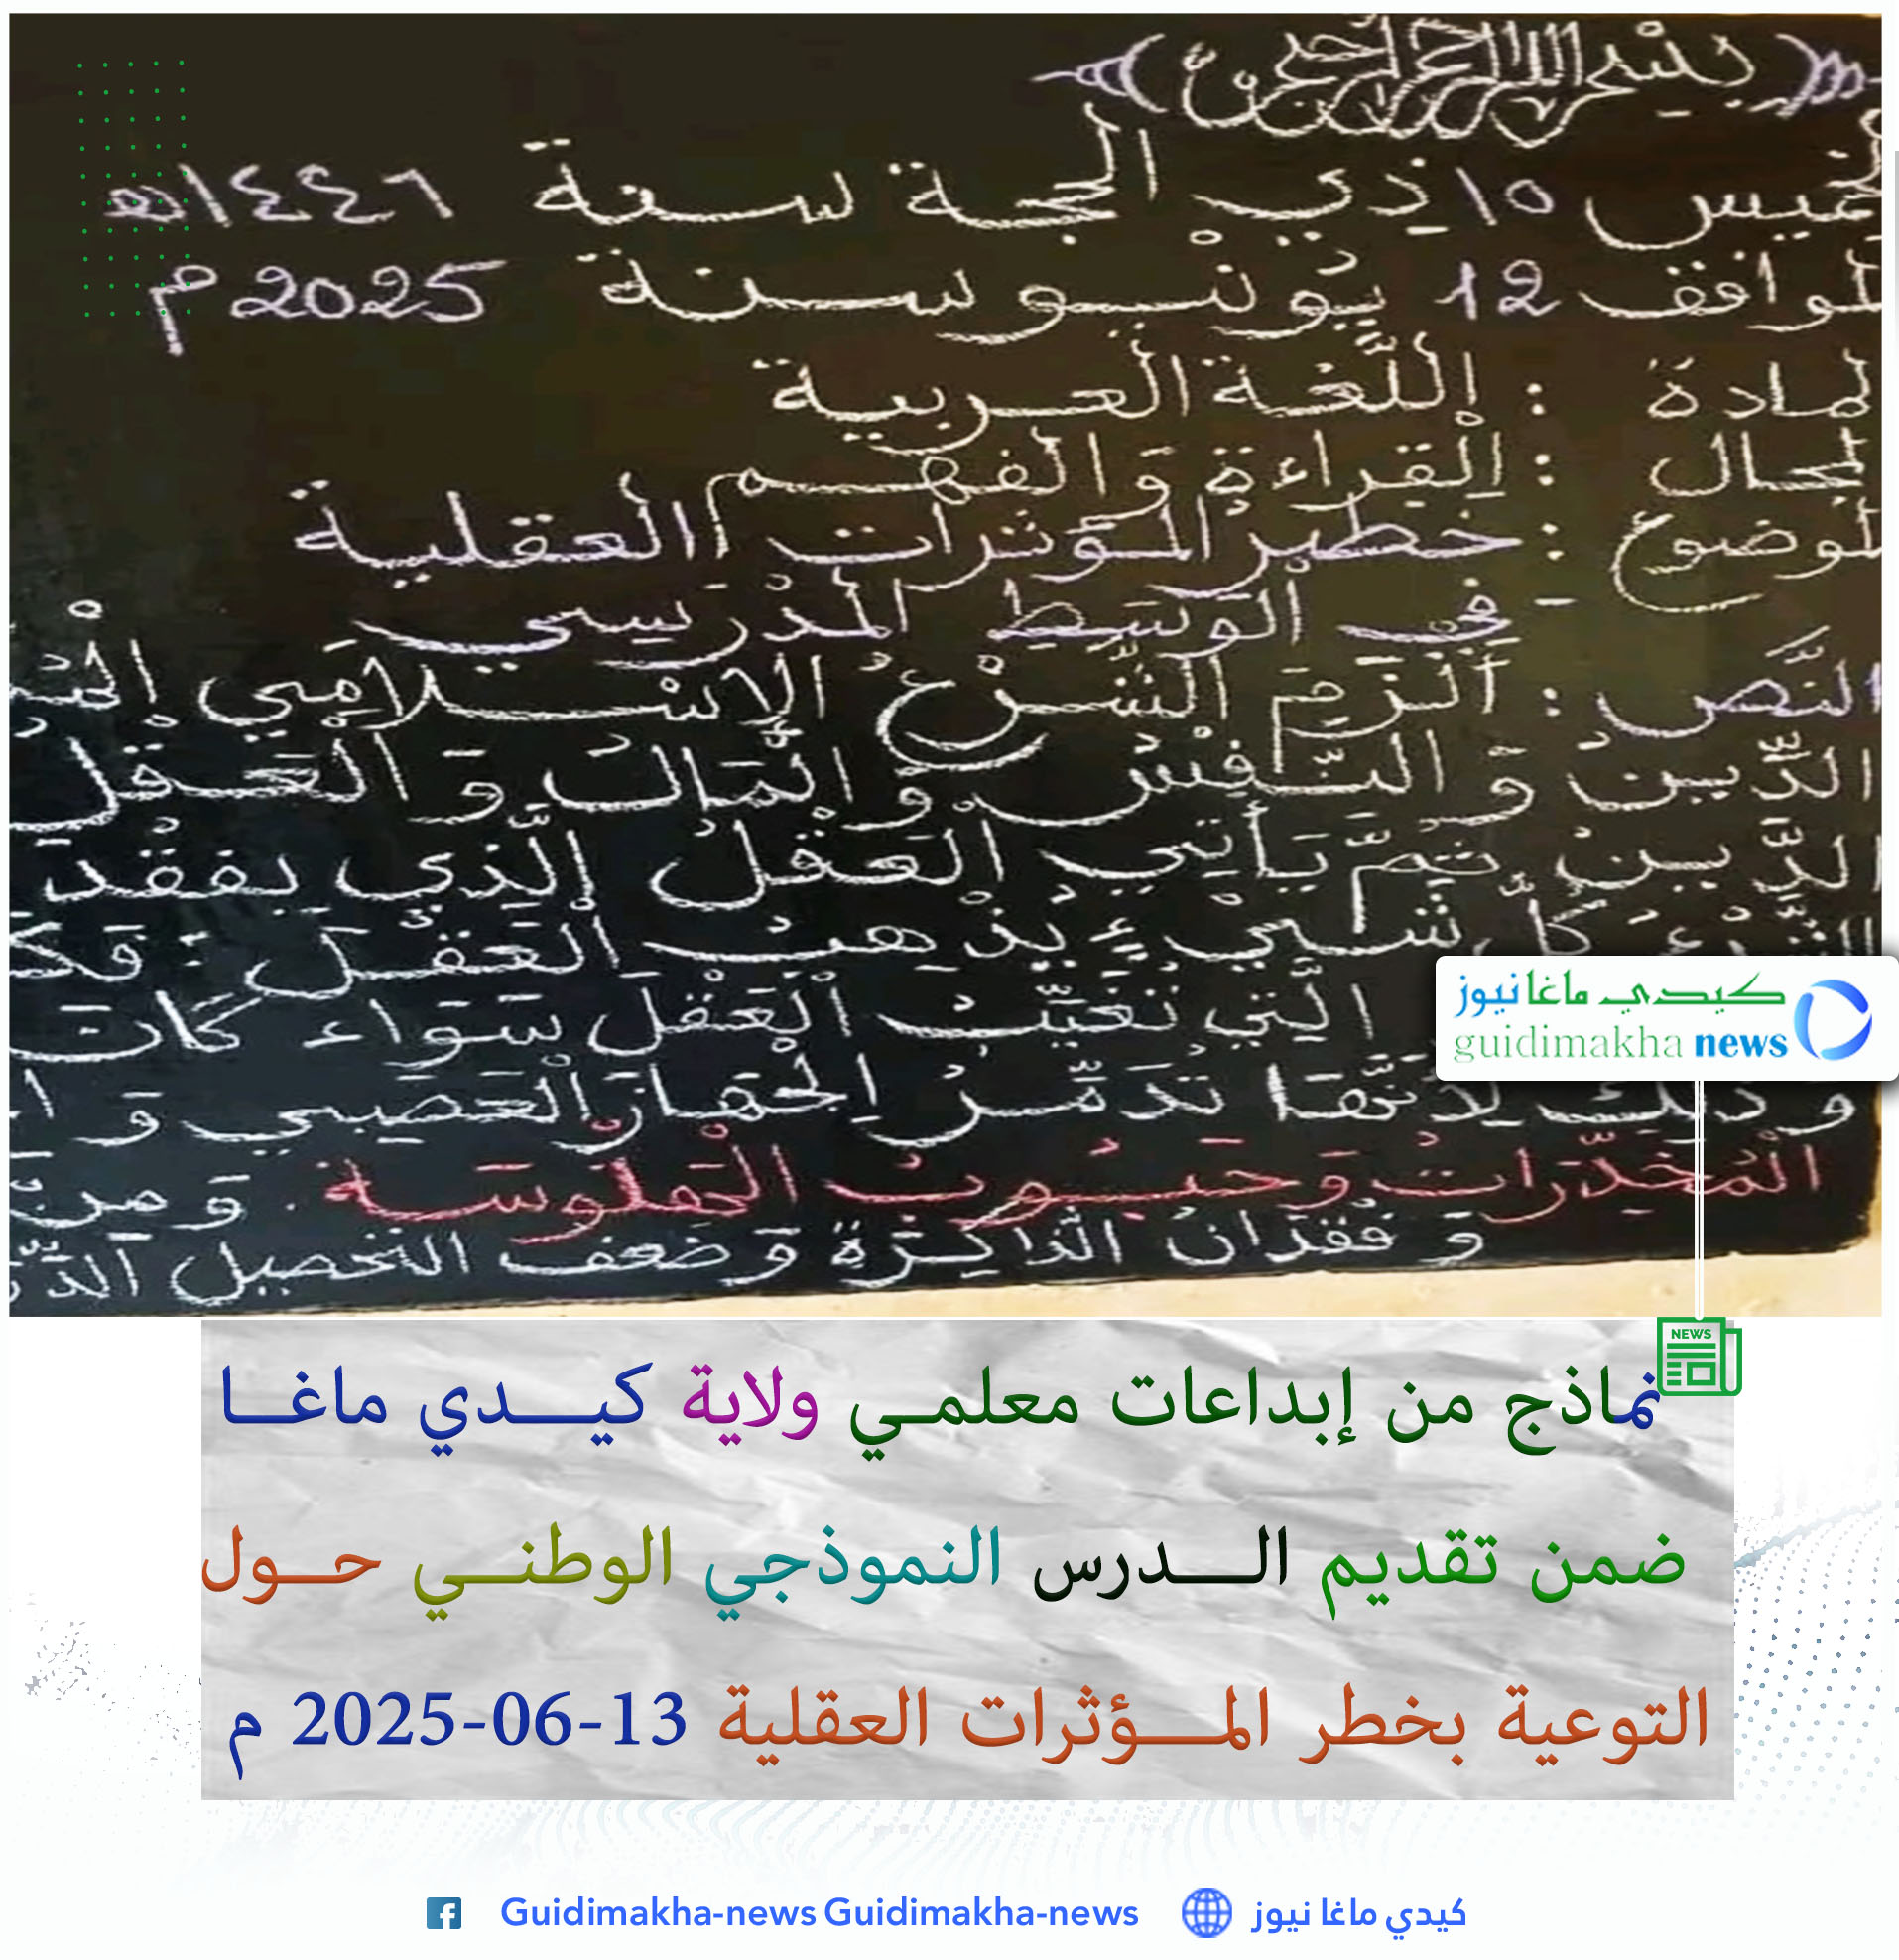 بسم الله الرحمن الرحيم
الخميس 15 ذي الحجة سنة ١٤٤٦ه
الموافق 12 يونيو سنة 2025 م
لمادة : اللّغة العربية
لمجال : القراءة والفهم
لموضوع : خطر المؤثرات العقلية
- في الوسط المدرسي
النَّص : ألزم الشرع الإسلامي
الدّين و النّفس و المال و العقل
الدّين ثمّ يأتي العقل الّذي يفقد
كلّ شيء يذهب العقل :
الّتي تغيّب العقل سواء كانت
و ذلك لأنّها تدمّر الجهاز العصبي و
المخدّرات و حبوب الهلوسة . و من
و فقدان الذاكرة و ضعف التحصيل
كيدي ماغا نيوز
guidimakha news
NEWS
نماذج من إبداعات معلمي ولاية كيدي ماغا
ضمن تقديم الدرس النموذجي الوطني حول
التوعية بخطر المؤثرات العقلية 13-06-2025 م
Guidimakha-news Guidimakha-news كيدي ماغا نيوز